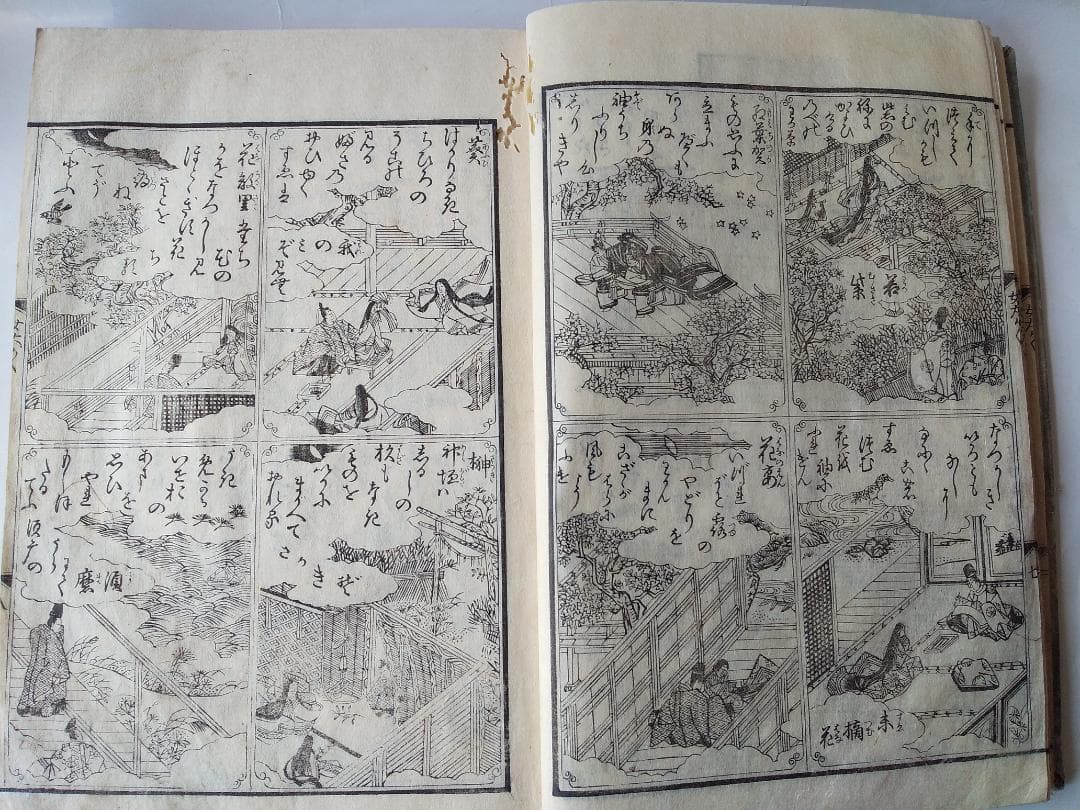 若紫
手に
つみて
いつしかも
みむ
紫の
ねに
かよひ
ける
のべの
わか草
末摘花
なつかしき
いろとも
なしに
なにに
この
すゑ
つむ
花を
袖に
ふれ
けん
紅葉賀
ものおもふに
立まふ
べくも
あらぬ
身の
袖うち
ふりし
心
しりきや
花宴
いづれ
ぞと露の
やどりを
わかん
まに
こざさが
はらに
風も
こそ
ふけ
葵
はかりなき
ちひろの
そこの
みる
ぶさの
おひゆく
すゑは
我
のミ
ぞ見む
榊
神垣は
しるしの
杉も
なき
ものを
いかに
まがへて
おれる
さかき
ぞ
花散里
たち
ばなの
かをなつかしみ
ほとゝぎす花
ちる
さとを
たづ
ね
てぞ
とふ
須磨
うき
めかる
いせをの
あまを
思ひ
やれ
もしほ
たる
てふ須まの
うらにて